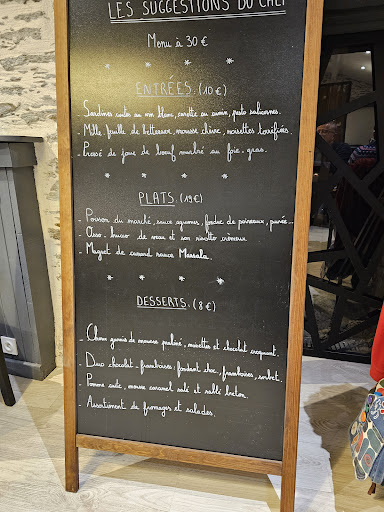 LES SUGGESTIONS DU CHEF
Menu à 30 €
ENTRÉES. (10 €)
- Sardines cuites au vin blanc, carotte au cumin, pesto
- Mille feuille de betterave, mousse chèvre, noisettes torréfiées.
- Pressé de joue de boeuf marbré au foie-gras.
PLATS. (19 €)
- Poisson du marché, sauce agrumes, fondue de poireaux, purée...
- Osso-bucco de veau et son risotto crémeux.
- Magret de canard sauce Marsala.
DESSERTS. (8 €)
- Choux garnis de mousse praliné, noisettes et chocolat craquant.
- Duo chocolat-framboises, fondant choc, framboises, sorbet.
- Pomme cuite, mousse caramel salé et sablé breton.
- Assortiment de fromages et salades.